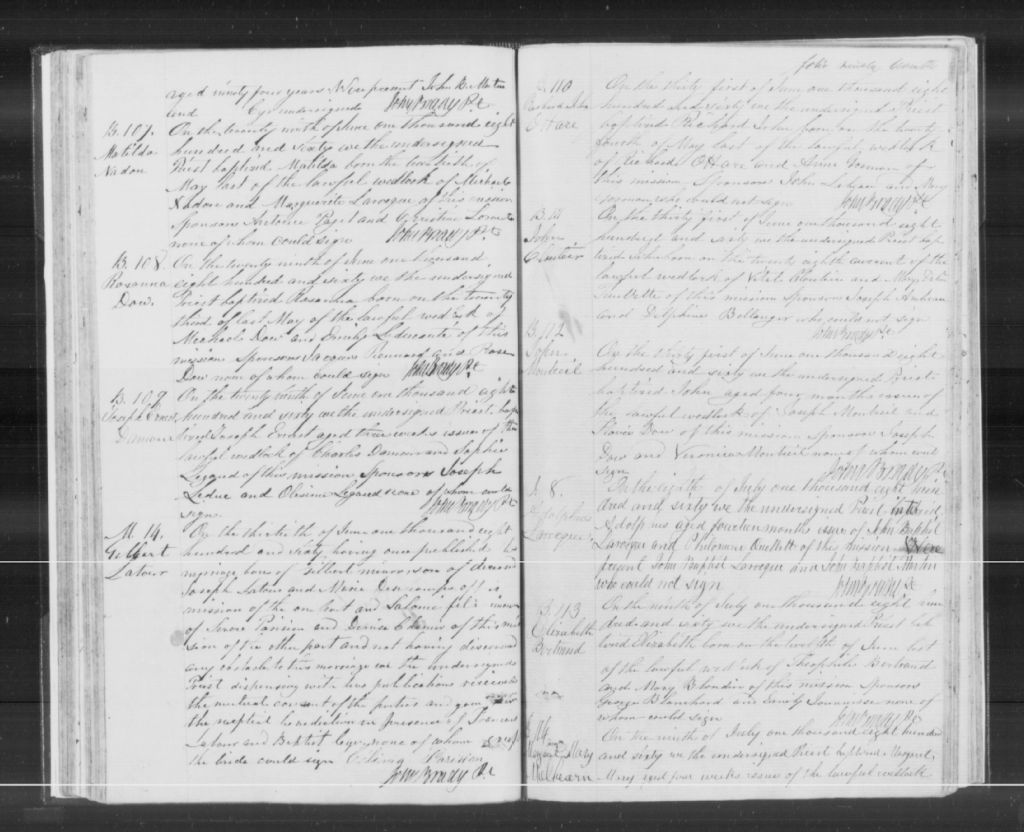 aged ninety four years Were present John B. Martin
and undersigned John Brady Pt.
B. 107. On the twenty ninth of June one thousand eight
Matilda hundred and sixty we the undersigned
Nadon Priest baptized Matilda born the twelfth of
May last of the lawful wedlock of Michael
Nadore and Marguerite Larocque of this mission
Sponsors Antoine Paget and Christine
none of whom could sign John Brady Pt.
B. 108. On the twenty ninth of June one thousand
Rosanna eight hundred and sixty we the undersigned
Dow. Priest baptized Rosanna born on the twenty
third of last May of the lawful wedlock of
Michael Dow and Emily of this
mission Sponsors Jacques Rennard and Rose
Dow none of whom could sign John Brady Pt.
B. 109 On the twenty ninth of June one thousand eight
Joseph Ernest hundred and sixty we the undersigned Priest bap
Damour tized Joseph Ernest aged three weeks issue of the
lawful wedlock of Charles Damour and Sophie
Legard of this mission Sponsors Joseph
Leduc and Olesime Legard none of whom could
sign. John Brady Pt.
M. 14. On the thirtieth of June one thousand eight
Gilbert hundred and sixty having once published the
Latour marriage bans of Gilbert minor son of deceased
Joseph Latour and Marie Descamps of this
mission of the one part and Salome minor
of Parisien and Denise of this mis
sion of the other part and not having discovered
any obstacle to this marriage we the undersigned
Priest dispensing with two publications received
the mutual consent of the parties and gave them
the nuptial benediction in presence of
Latour and Baptist none of whom except
the bride could sign Parisien
John Brady Pt.
folio ninety
B. 110 On the thirty first of June one thousand eight
Richard John hundred and sixty we the undersigned Priest
O'Hare baptized Richard John born on the twenty
fourth of May last of the lawful wedlock
of Richard O'Hare and Anne Gorman of
this mission Sponsors John and Mary
Gorman who could not sign John Brady Pt.
B. 111 On the thirty first of June one thousand eight
John hundred and sixty we the undersigned Priest bap
Cloutier tized John born on the twenty eighth current of the
lawful wedlock of Cloutier and
of this mission Sponsors Joseph
and Delphine Bellanger who could not sign
John Brady Pt.
B. 112 On the thirty first of June one thousand eight
John hundred and sixty we the undersigned Priest
Monteil baptized John aged four months issue of
the lawful wedlock of Joseph Monteil and
Dow of this mission Sponsors Joseph
Dow and Veronica Monteil none of whom could
sign John Brady Pt.
S. 8. On the eighth of July one thousand eight hun
Adolphus dred and sixty we the undersigned Priest interred
Larocque Adolphus aged fourteen months issue of John Baptist
Larocque and Philomene Ouellett of this mission Were
present John Baptist Larocque and John Baptist Martin
who could not sign John Brady Pt.
B. 113 On the ninth of July one thousand eight hun
Elizabeth dred and sixty we the undersigned Priest bap
Bertrand tized Elizabeth born on the twelfth of June last
of the lawful wedlock of Theophile Bertrand
and Mary Blondin of this mission Sponsors
George Blanchard and Emily none of
whom could sign John Brady Pt.
114 On the ninth of July one thousand eight hundred
Margaret Mary and sixty we the undersigned Priest baptized Margaret
McChearn Mary aged four weeks issue of the lawful wedlock